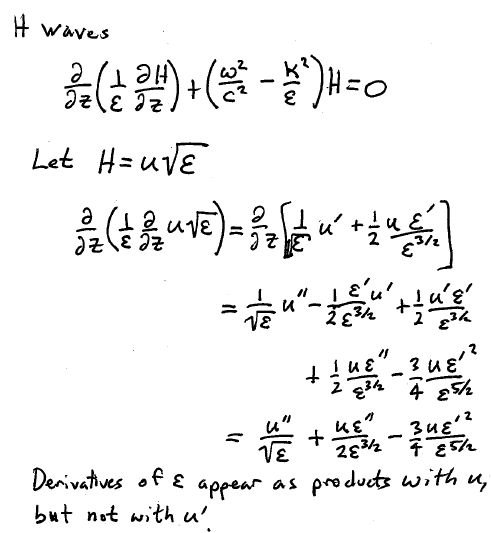 H waves
∂/∂z (1/ε ∂H/∂z) + (ω²/c² - k²/ε) H = 0
Let H = u√ε
∂/∂z (1/ε ∂/∂z u√ε) = ∂/∂z [1/√ε u' + 1/2 u ε'/ε^{3/2}]
= 1/√ε u'' - 1/2 ε'u'/ε^{3/2} + 1/2 u'ε'/ε^{3/2}
+ 1/2 uε''/ε^{3/2} - 3/4 uε'²/ε^{5/2}
= u''/√ε + uε''/2ε^{3/2} - 3/4 uε'²/ε^{5/2}
Derivatives of ε appear as products with u,
but not with u'.